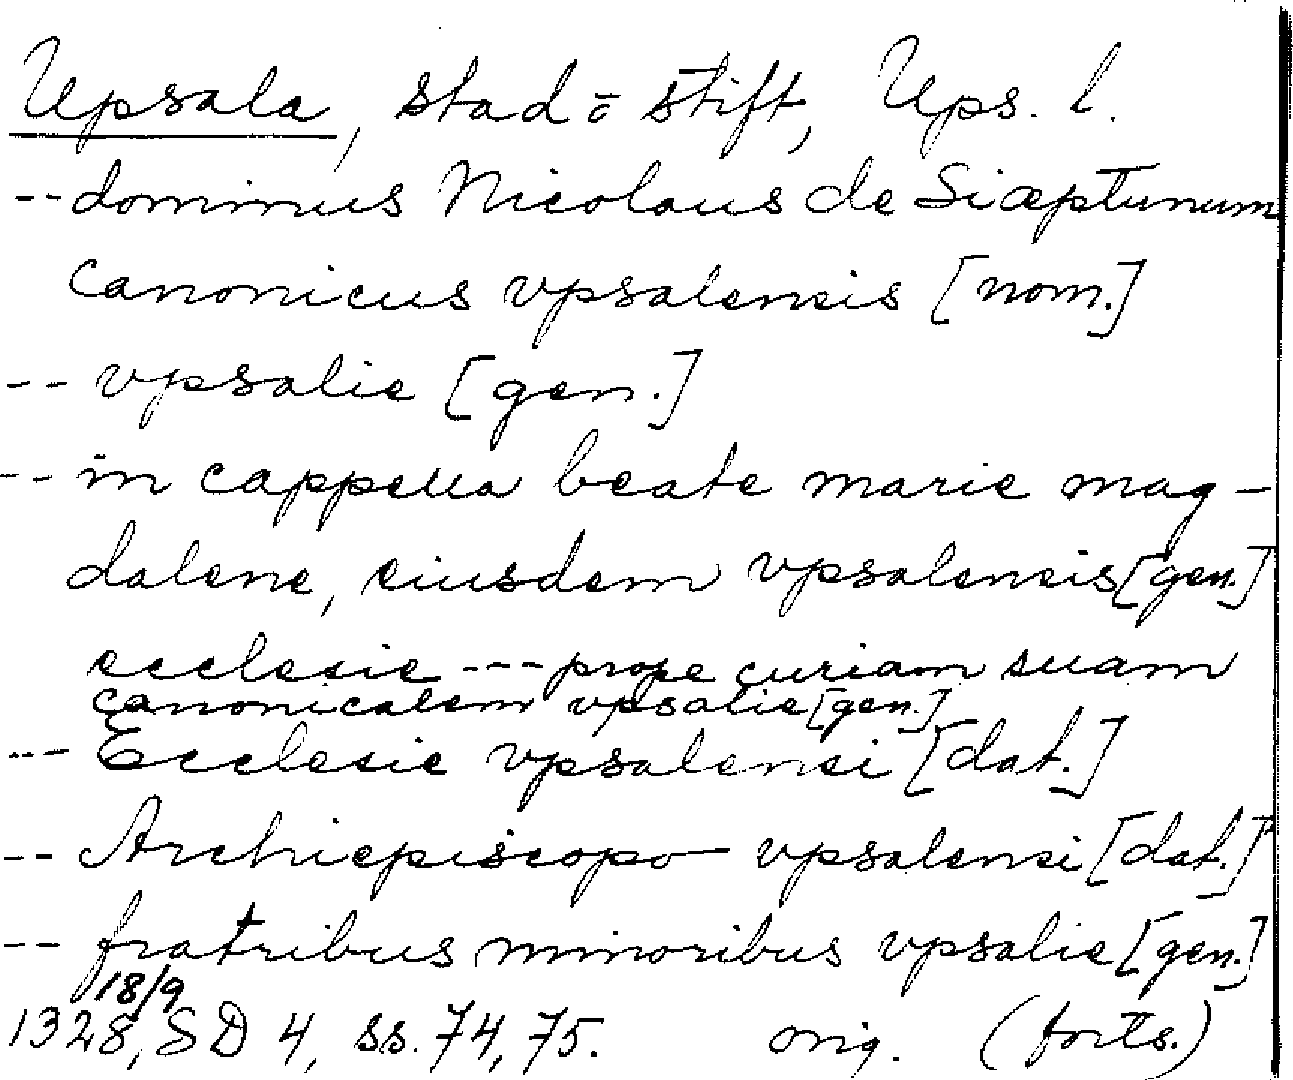 Upsala, stad o stift, Ups. l.
-- dominus Nicolaus de Siæptunum
canonicus vpsalensis [nom.]
-- vpsalie [gen.]
-- in cappella beate marie mag-
dalene, eiusdem vpsalensis [gen.]
ecclesie --- prope curiam suam
canonicalem vpsalie [gen.]
--- Ecclesie vpsalensi [dat.]
-- Archiepiscopo vpsalensi [dat.]
-- fratribus minoribus vpsalie [gen.]
18/9
1328, SD 4, ss. 74, 75. orig. (forts.)